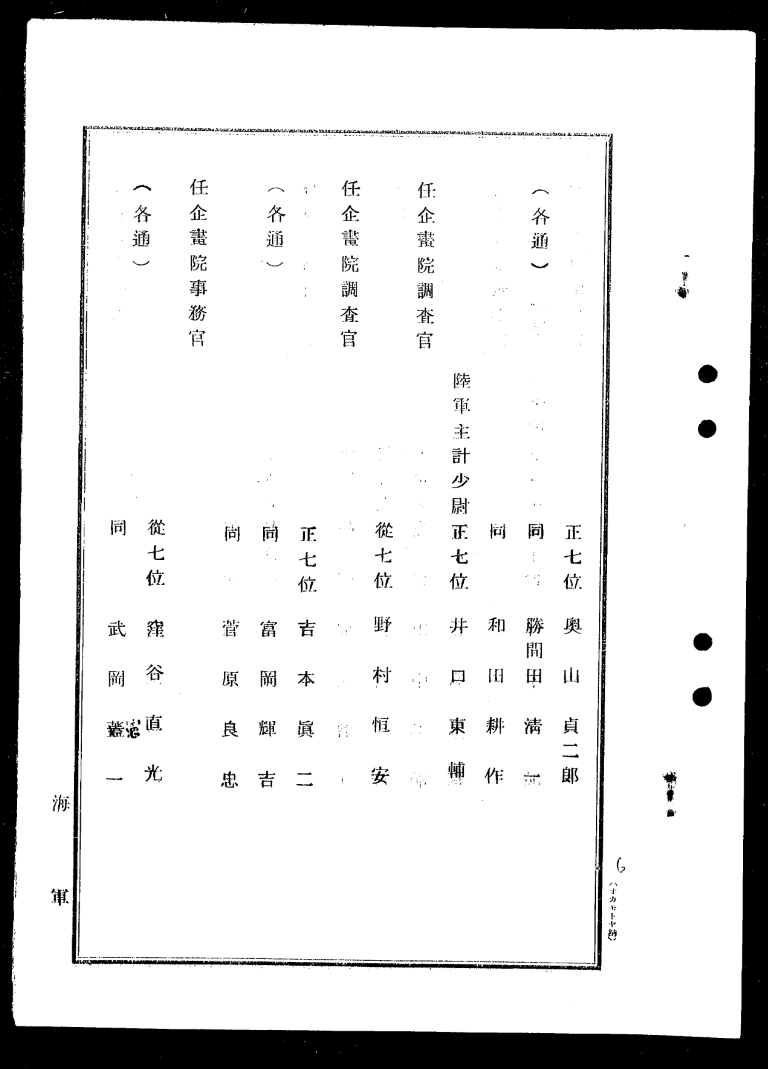 正七位 奧山貞二郞
同 勝間田淸一
（各通）
同 和田耕作
陸軍主計少尉 正七位 井口東輔
任企畫院調査官
從七位 野村恒安
任企畫院調査官
正七位 吉本眞二
同 富岡輝吉
（各通）
同 菅原良忠
任企畫院事務官
從七位 窪谷直光
（各通）
同 武岡忠一
海軍
6
（オカモトヤ納）